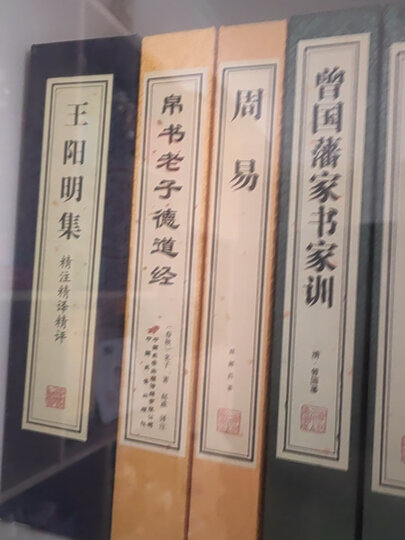 王阳明集
精注精译精评
帛书老子德道经
（春秋）老子 著
周易
曾国藩家书家训
清·曾国藩